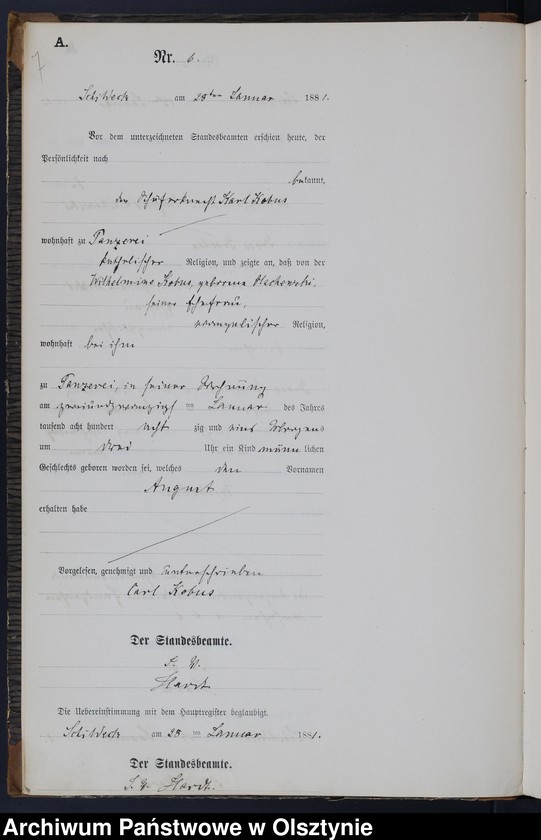 A.
7
Nr. 6.
am 28ten Januar 1881.
Vor dem unterzeichneten Standesbeamten erschien heute, der
Persönlichkeit nach
bekannt,
der Schäferknecht Karl Kobus
wohnhaft zu Panzerei
katholischer Religion, und zeigte an, daß von der
Wilhelmine Kobus, geborene Olschewski,
seiner Ehefrau,
evangelischer Religion,
wohnhaft bei ihm
zu Panzerei, in seiner Wohnung
am zweiundzwanzigsten Januar des Jahres
tausend acht hundert acht zig und eins Morgens
um drei Uhr ein Kind männ lichen
Geschlechts geboren worden sei, welches den Vornamen
August
erhalten habe
Vorgelesen, genehmigt und unterschrieben
Carl Kobus
Der Standesbeamte.
J. V.
Hardt
Die Uebereinstimmung mit dem Hauptregister beglaubigt.
am 28ten Januar 1881.
Der Standesbeamte.
J. V. Hardt.
Archiwum Państwowe w Olsztynie